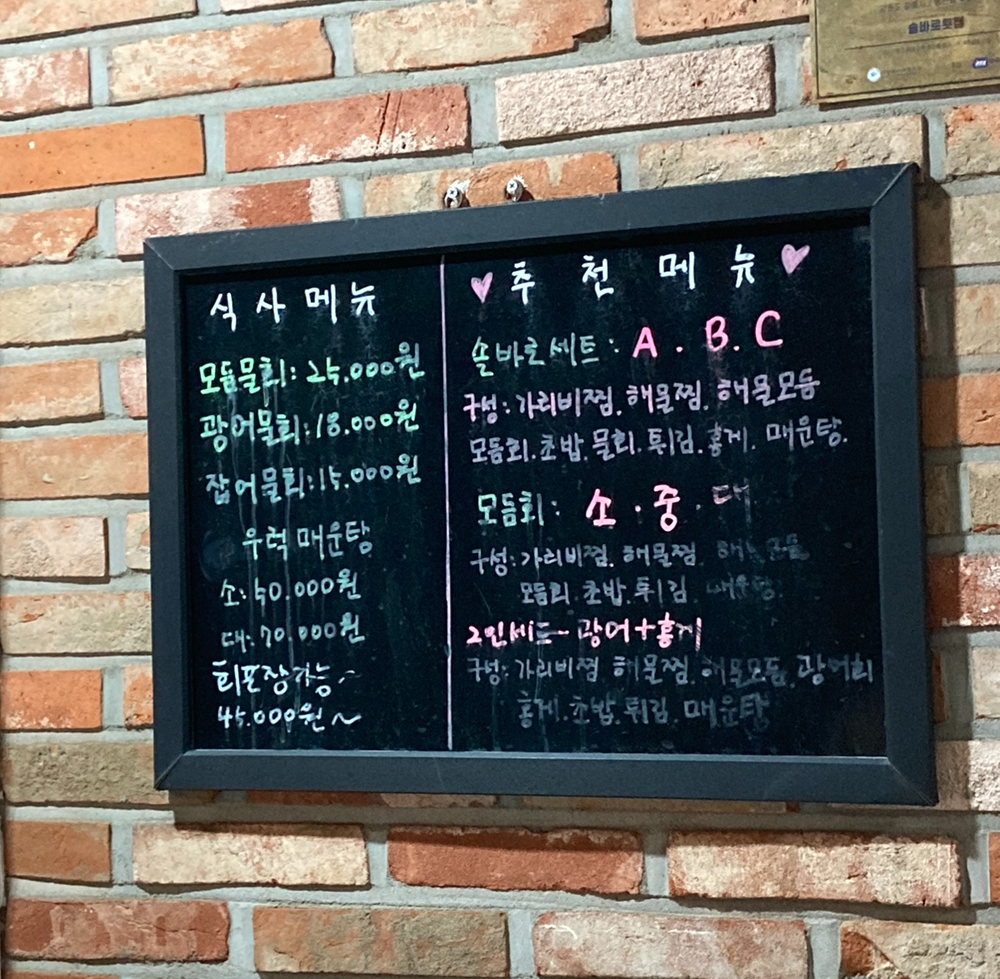 솔바로횟집
식사메뉴
모듬물회: 25.000원
광어물회: 18.000원
잡어물회: 15.000원
우럭 매운탕
소: 50.000원
대: 70.000원
회포장가능~
45.000원~
♥ 추천메뉴 ♥
솔바로세트: A. B. C
구성: 가리비찜. 해물찜. 해물모듬
모듬회. 초밥. 물회. 튀김. 홍게. 매운탕.
모듬회: 소 · 중 · 대
구성: 가리비찜. 해물찜. 해물모듬
모듬회. 초밥. 튀김. 매운탕.
2인세트- 광어+홍게
구성: 가리비찜. 해물찜. 해물모듬. 광어회
홍게. 초밥. 튀김. 매운탕